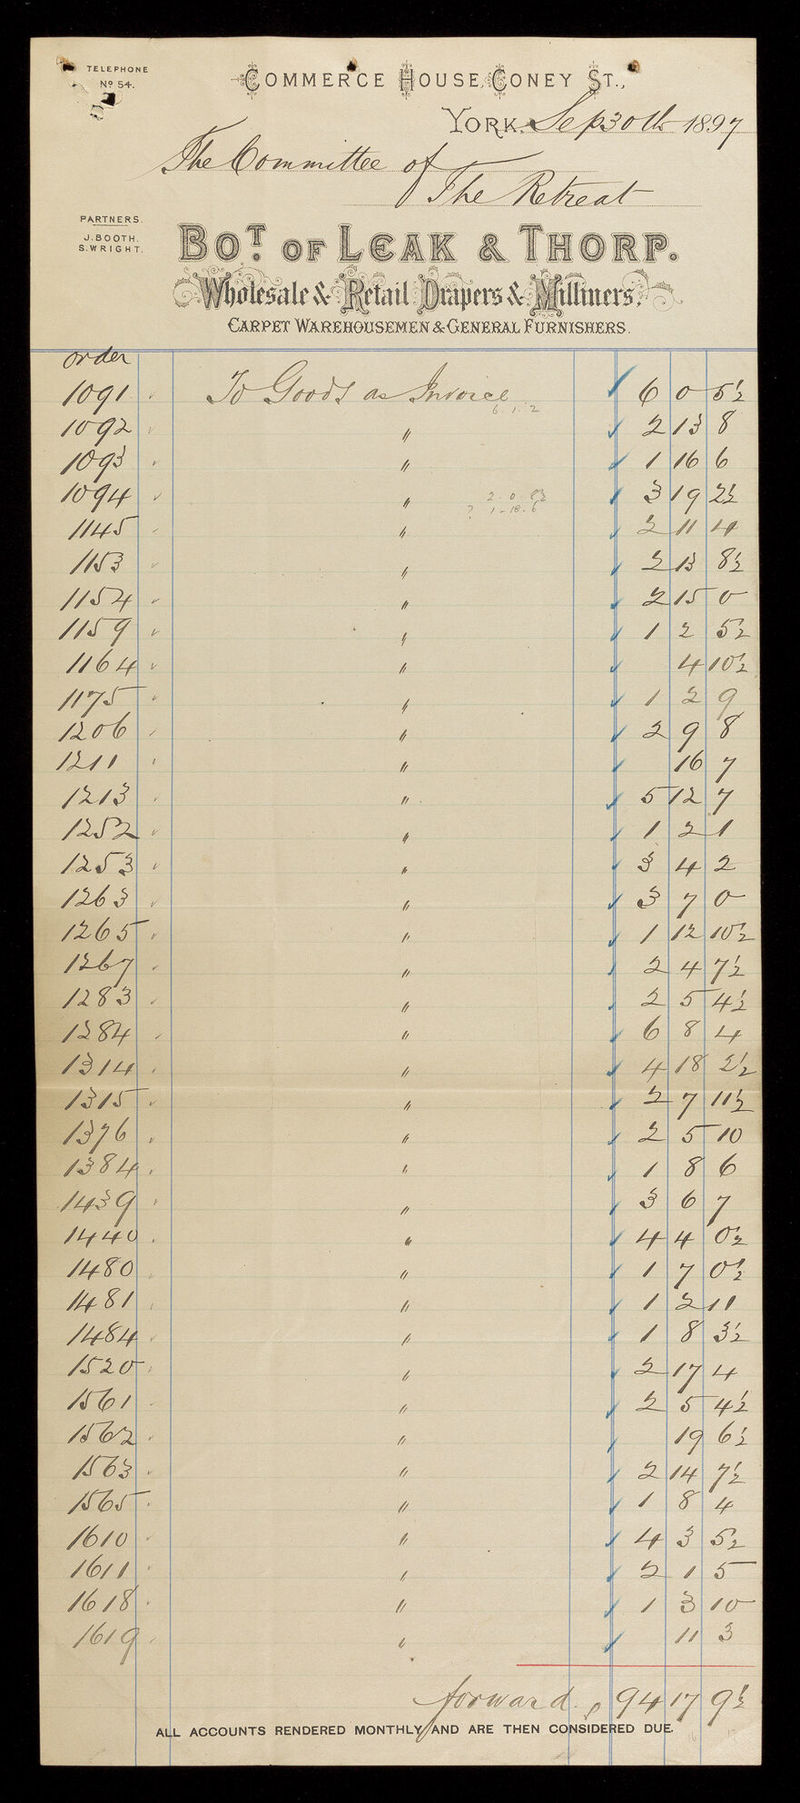 TELEPHONE
Nº 54.
COMMERCE HOUSE, CONEY ST.,
YORK. Sep 30th 1897
The Committee of
The Retreat
PARTNERS.
J. BOOTH.
S. WRIGHT.
BOT. OF LEAK & THORP.
Wholesale & Retail Drapers & Milliners,
CARPET WAREHOUSEMEN & GENERAL FURNISHERS.
order
1091 To Goods as Invoice 6 0 5½
6.1.2
1092 " 2 13 8
1093 " 1 16 6
1094 " 3 19 2½
2.0.8½
? 1-18.6
1145 " 2 11 4
1153 " 2 13 8½
1154 " 2 15 0
1159 " 1 2 5½
1164 " 4 10½
1175 " 1 2 9
1206 " 2 9 8
1211 " 16 7
1213 " 5 12 7
1252 " 1 2 1
1253 " 3 4 2
1263 " 3 7 0
1265 " 1 12 10½
1267 " 2 4 7½
1283 " 2 5 4½
1284 " 6 8 4
1314 " 4 18 2½
1315 " 2 7 11½
1376 " 2 5 10
1384 " 1 8 6
1439 " 3 6 7
1440 " 4 4 0½
1480 " 1 7 0½
1481 " 1 2 11
1484 " 1 8 3½
1520 " 2 17 4
1561 " 2 5 4½
1562 " 19 6½
1563 " 2 14 7½
1565 " 1 8 4
1610 " 4 3 5½
1611 " 2 1 5
1618 " 1 3 10
1619 " 11 3
forward £ 94 17 9½
ALL ACCOUNTS RENDERED MONTHLY AND ARE THEN CONSIDERED DUE.